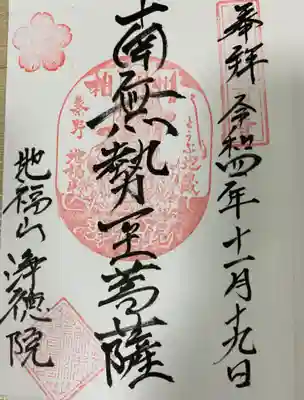 奉拝
令和四年十一月十九日
南無勢至菩薩
地福山
浄徳院
秦野